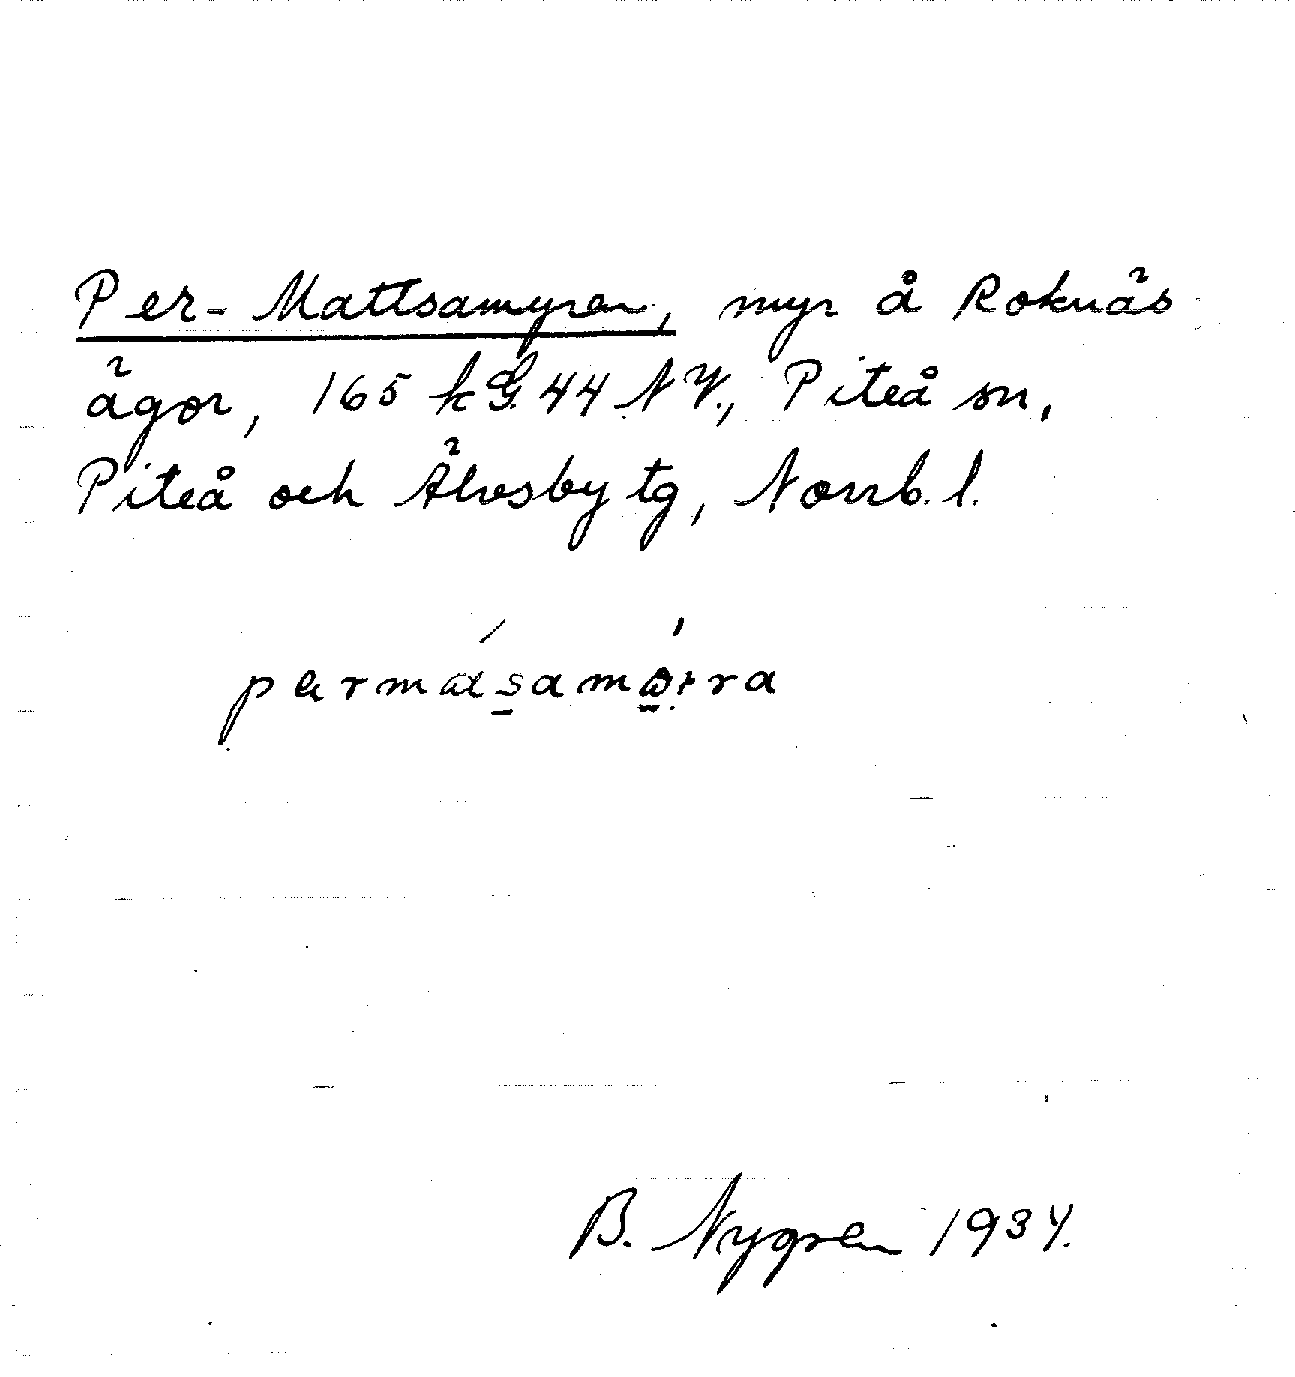 Per-Mattsamyren, myr å Roknäs
ägor, 165 kG. 44 NV., Piteå sn,
Piteå och Älvsby tg, Norrb. l.
B. Nygren 1934.